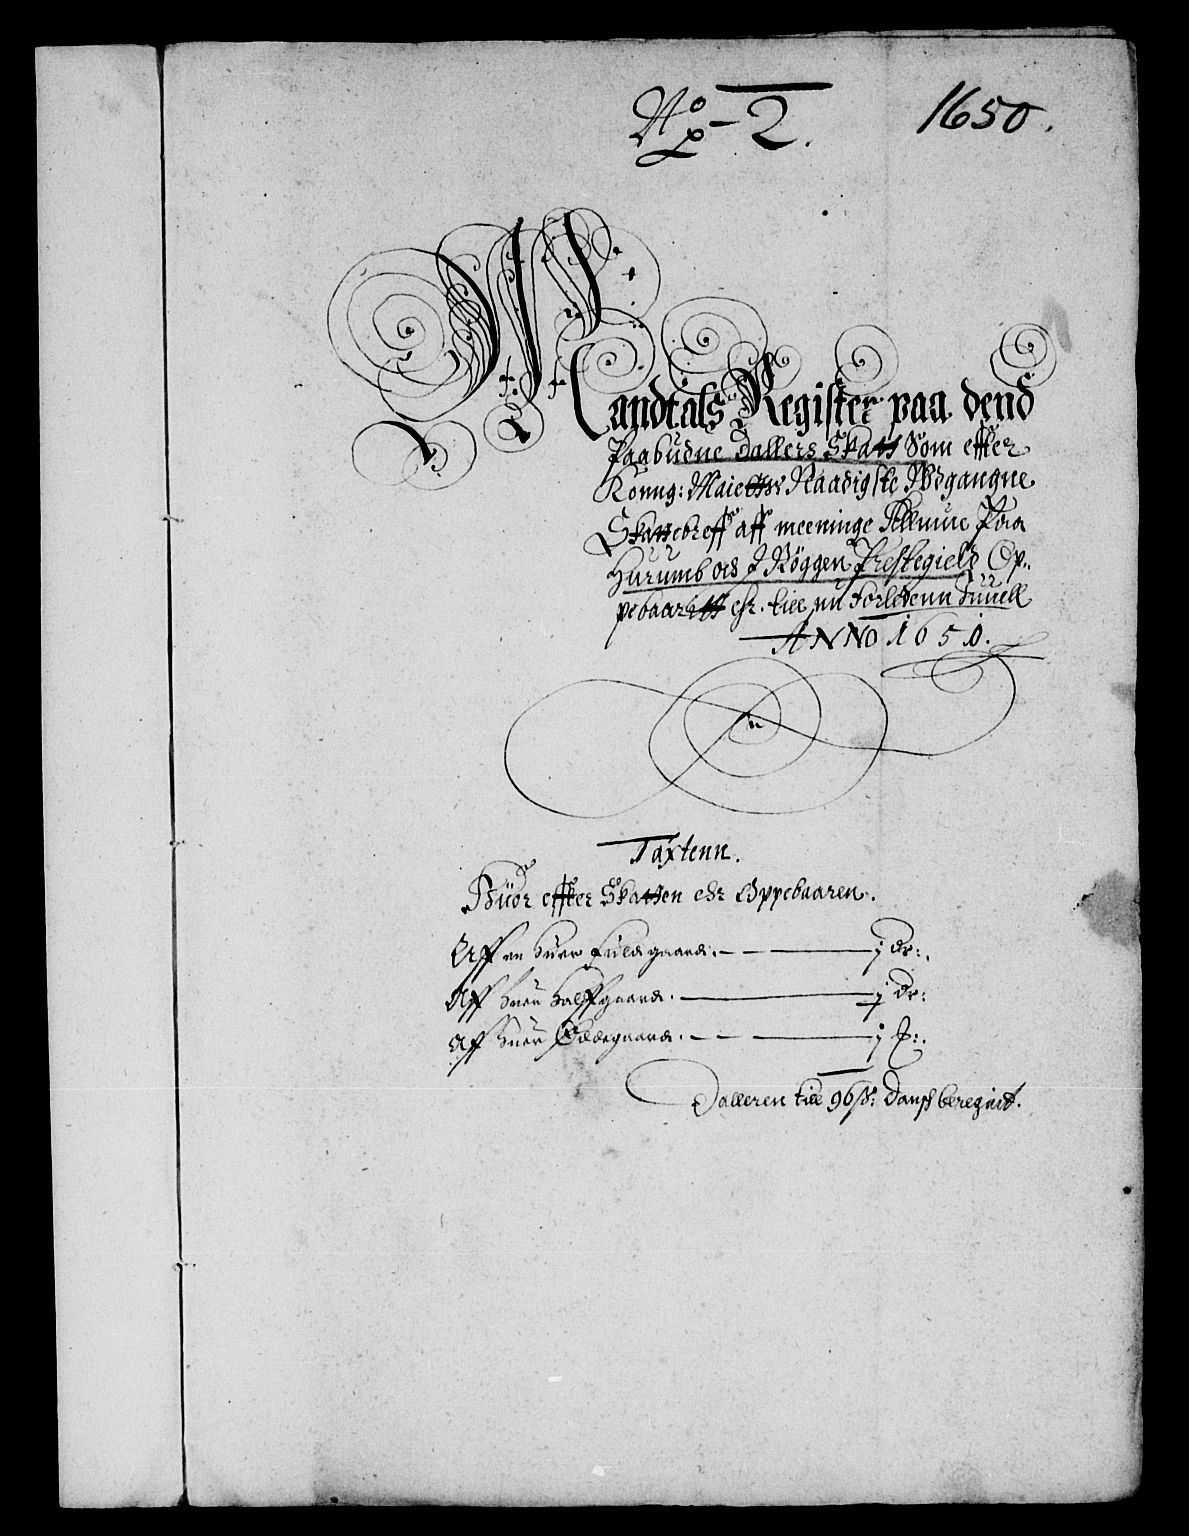 No 2. 1650.
Mandtals Register paa dend
Paabudne Dallers Skatt Som effter
Konng: Maietts: Naadigste Udgangne
Skattebreff aff meeninge Allmue Paa
Hurumb och J Röggen Prestegield Op-
pebaaritt ehr. till nu forledenn Juuell
ANNO 1650.
Taxtenn.
Huor effter Skatten ehr Oppebaaren.
Aff en huer fuldgaard. — j dr:.
Aff huer halffgaard. — j dr:
Aff huer Ödegaard. — j
Dalleren till 96 ß: Dansk beregnit.